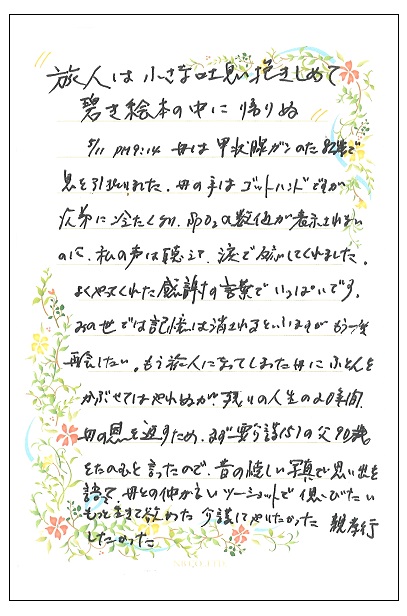 旅人は小さな吐息抱きしめて
碧き絵本の中に帰りぬ
5/11 PM9:14 母は甲状腺ガンのため 歳で
息を引きとりました。母の手はゴットハンドですが
次第に冷たくなり、SPO2の数値が表示されない
のに、私の声は聴こえ、涙で反応してくれました。
よくやってくれた感謝の言葉でいっぱいです。
あの世では記憶は消されるといいますがもう一度
再会したい。もう旅人になってしまった母にふとんを
かぶせてはやれぬが、残りの人生の20年間、
母の恩を返すため、まず要介護5の父90歳
をたのむと言ったので、昔の懐しい写真で思い出を
語る。母との仲が良いツーショットで偲びたい
もっと生きて欲しかった 介護してやりたかった 親孝行
したかった